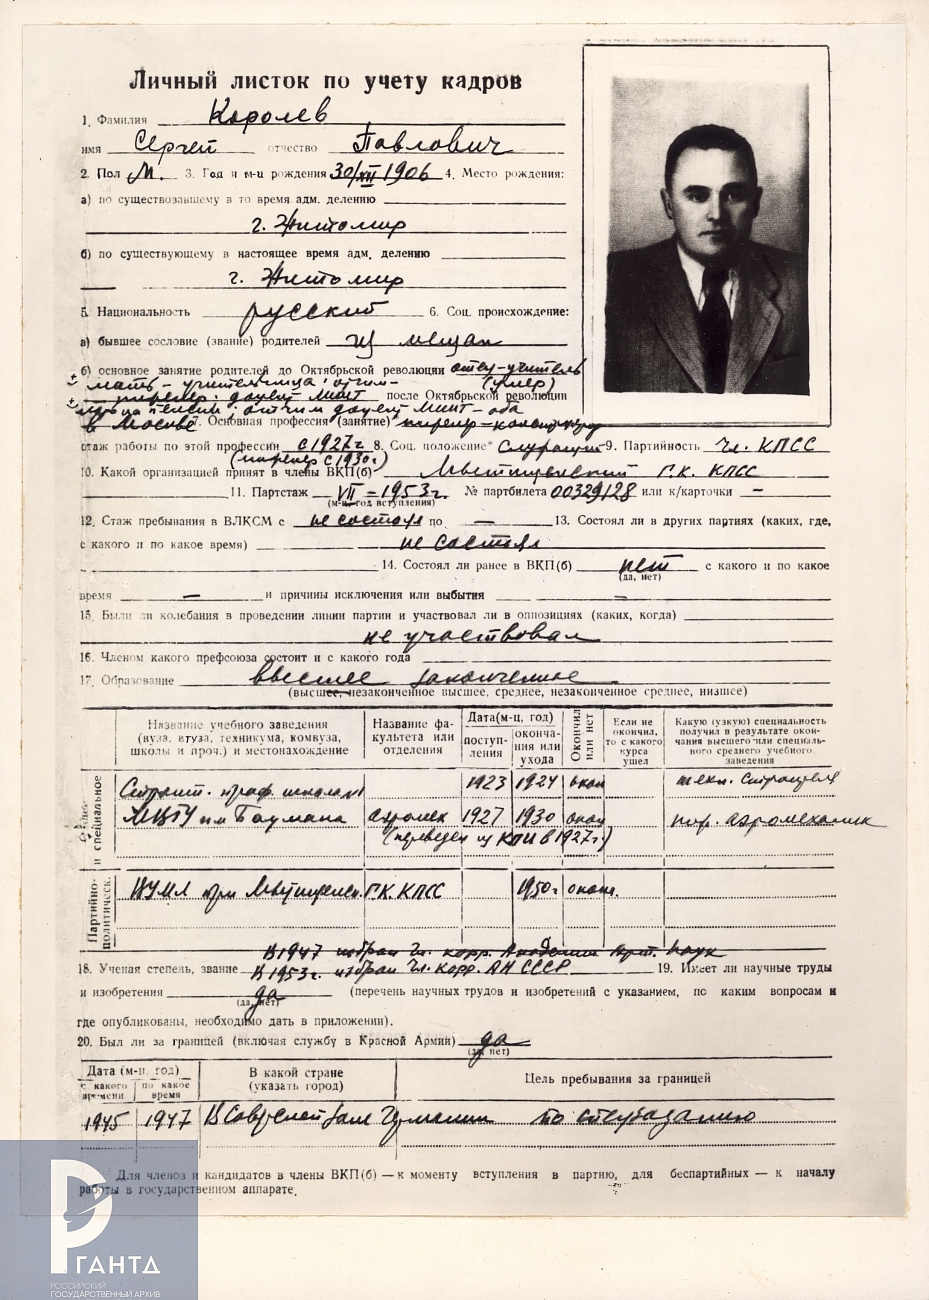 Личный листок по учету кадров
1. Фамилия Королев
имя Сергей отчество Павлович
2. Пол М. 3. Год и м-ц рождения 30/XII 1906 4. Место рождения:
а) по существовавшему в то время адм. делению
г. Житомир
б) по существующему в настоящее время адм. делению
г. Житомир
5. Национальность русский 6. Соц. происхождение:
а) бывшее сословие (звание) родителей из мещан
б) основное занятие родителей до Октябрьской революции отец-учитель
мать - учительница; отчим- (умер)
инженер. доцент МИИТ после Октябрьской революции
на пенсии; отчим доцент МИИТ-оба
в Москве 7. Основная профессия (занятие) инженер-конструктор
стаж работы по этой профессии с 1927 г. 8. Соц. положение* Служащий 9. Партийность Чл. КПСС
(инженер с 1930г.)
10. Какой организацией принят в члены ВКП(б) Мытищинский Г.К. КПСС
11. Партстаж VII-1953г. № партбилета 00329128 или к/карточки —
(м-ц, год вступления)
12. Стаж пребывания в ВЛКСМ с не состоял по — 13. Состоял ли в других партиях (каких, где,
с какого и по какое время) не состоял
14. Состоял ли ранее в ВКП(б) нет с какого и по какое
(да, нет)
время — и причины исключения или выбытия —
15. Были ли колебания в проведении линии партии и участвовал ли в оппозициях (каких, когда)
не участвовал
16. Членом какого префсоюза состоит и с какого года
17. Образование высшее законченное
(высшее, незаконченное высшее, среднее, незаконченное среднее, низшее)
Название учебного заведения (вуза, втуза, техникума, комвуза, школы и проч.) и местонахождение
Название факультета или отделения
Дата (м-ц, год)
поступления
окончания или ухода
Окончил или нет
Если не окончил, то с какого курса ушел
Какую (узкую) специальность получил в результате окончания высшего или специального среднего учебного заведения
и специальное
Строит. проф. школа 1923 1924 окон
МВТУ им Баумана аэромех 1927 1930 окон инж. аэромеханик
(переведен из КПИ в 1927г.)
Партийно-политическ.
ВУМЛ при Мытищенск. Г.К. КПСС 1950г окон.
В 1947 избран Чл. корр. Академии Арт. Наук
18. Ученая степень, звание В 1953 г. избран Чл. Корр. АН СССР 19. Имеет ли научные труды
и изобретения да (перечень научных трудов и изобретений с указанием, по каким вопросам и
(да, нет)
где опубликованы, необходимо дать в приложении).
20. Был ли за границей (включая службу в Красной Армии) да
(да, нет)
Дата (м-ц, год)
с какого времени
по какое время
В какой стране (указать город)
Цель пребывания за границей
1945 1947 В Советской Зоне Германии по спецзаданию
Для членов и кандидатов в члены ВКП(б) — к моменту вступления в партию, для беспартийных — к началу
работы в государственном аппарате.
РГАНТД
РОССИЙСКИЙ
ГОСУДАРСТВЕННЫЙ АРХИВ